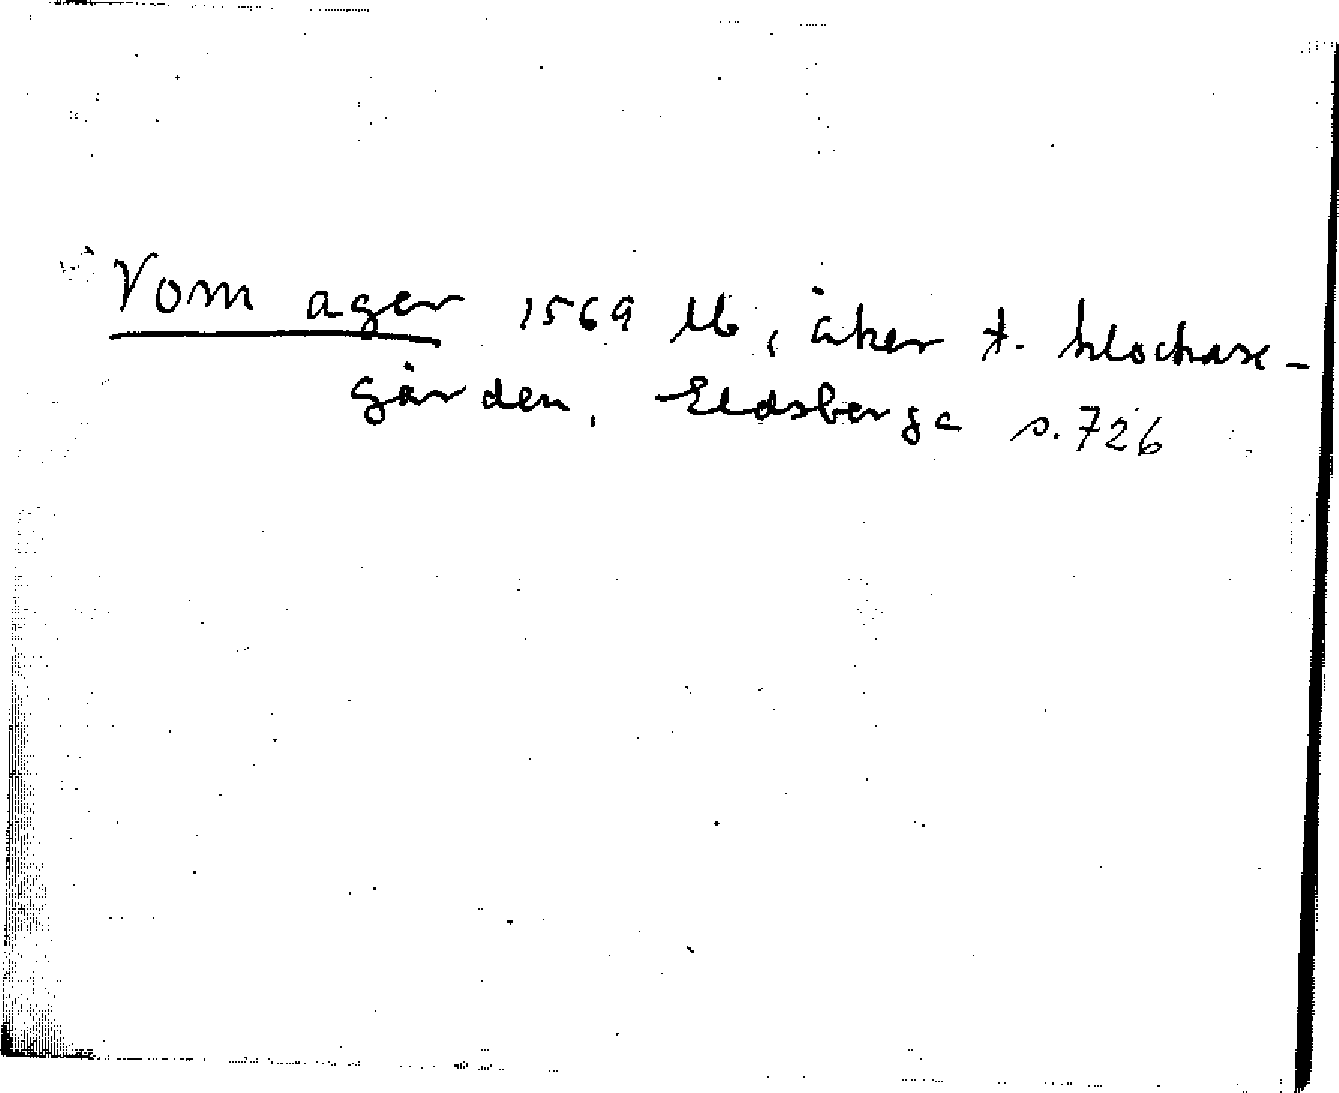 Vom ager 1569 Ub, åker t. klockare-
gården, Eldsberga s.726